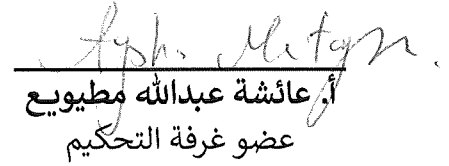 أ. عائشة عبدالله مطيويع
عضو غرفة التحكيم